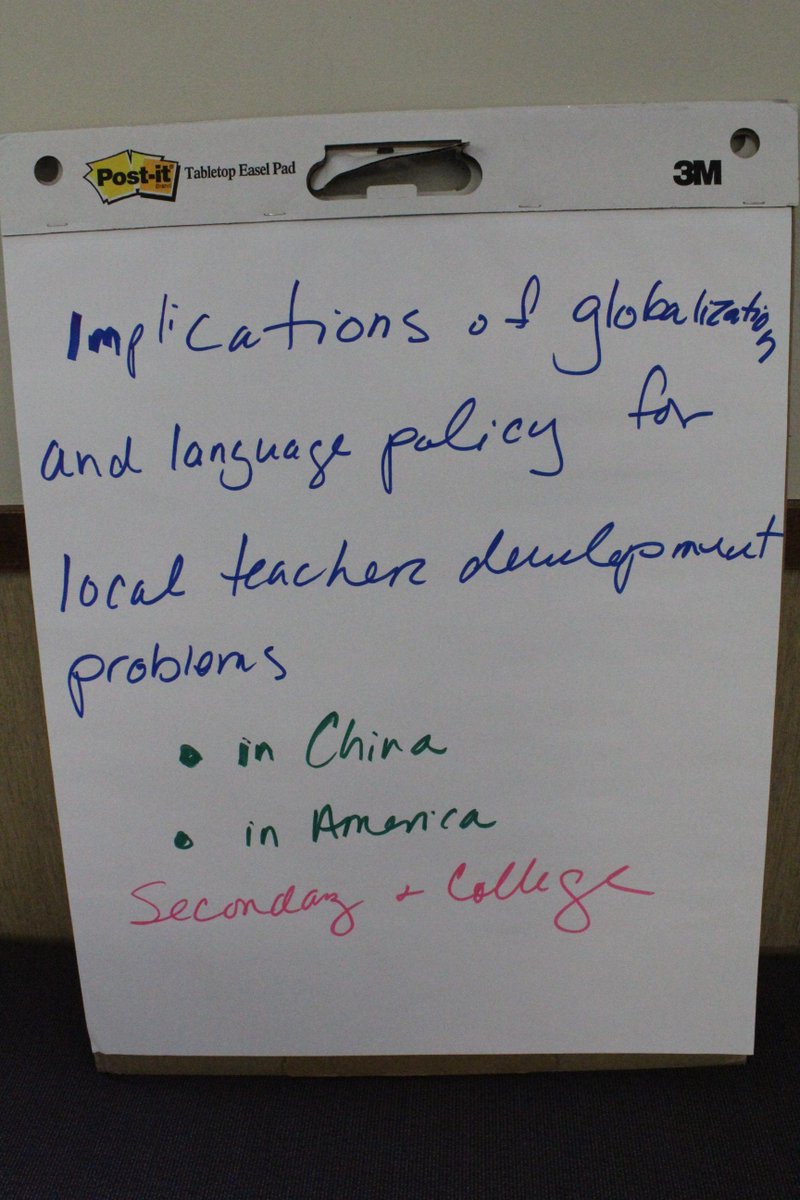 Post-it Brand Tabletop Easel Pad 3M
Implications of globalization
and language policy for
local teacher development
problems
• in China
• in America
Secondary + College